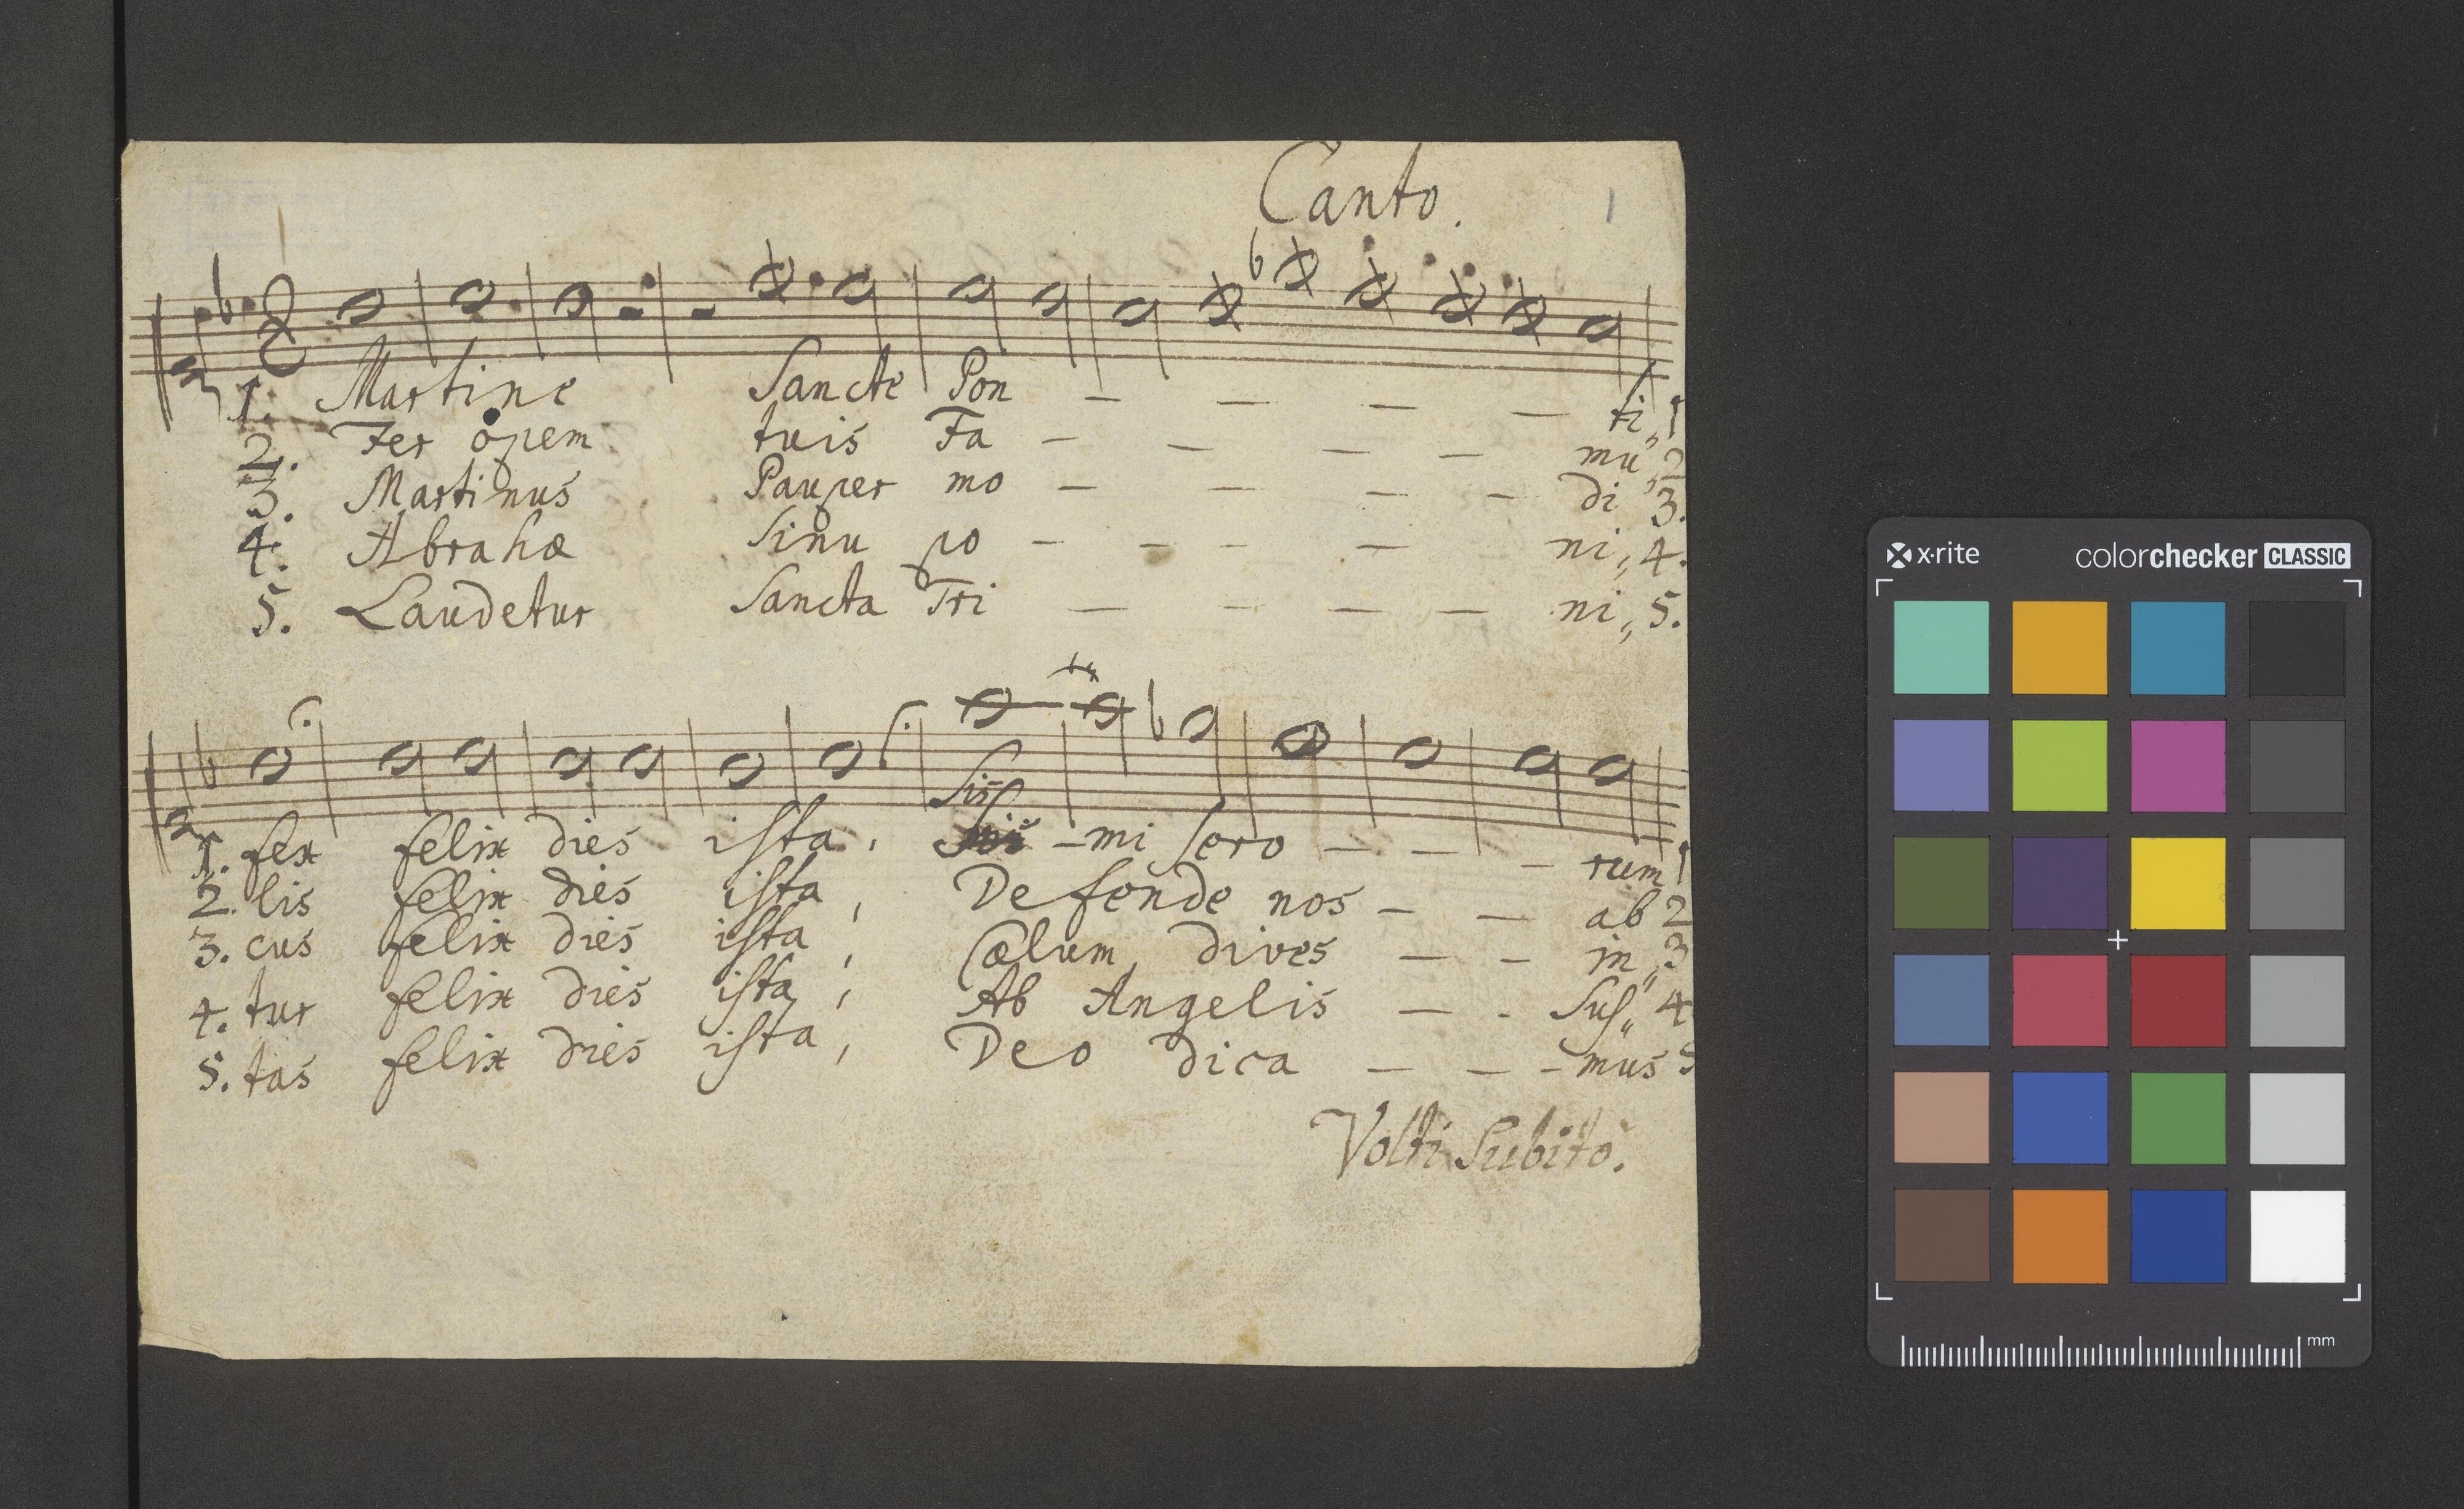 Canto. 1
1. Martine Sancte Pon - - - - ti„ 1
2. Fer opem tuis Fa - - - - mu„ 2
3. Martinus Pauper mo - - - - di„ 3.
4. Abrahæ Sinu po - - - - ni„ 4.
5. Laudetur Sancta Tri - - - - ni„ 5.
tr
Sis
1. fex felix dies ista, - mi sero - - - rum 1
2. lis felix dies ista, Defende nos - - ab 2
3. cus felix dies ista, Cælum dives - - in„ 3
4. tur felix dies ista, Ab Angelis - - Sus„ 4
5. tas felix dies ista, Deo dica - - - mus 5
Volti Subito.
x·rite colorchecker CLASSIC
mm